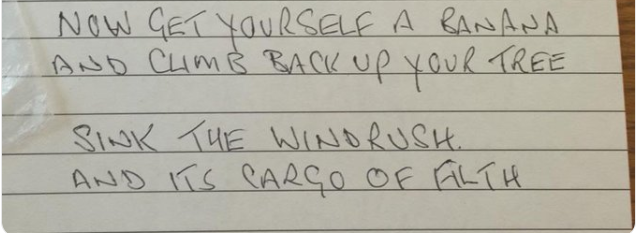 NOW GET YOURSELF A BANANA
AND CLIMB BACK UP YOUR TREE
SINK THE WINDRUSH.
AND ITS CARGO OF FILTH